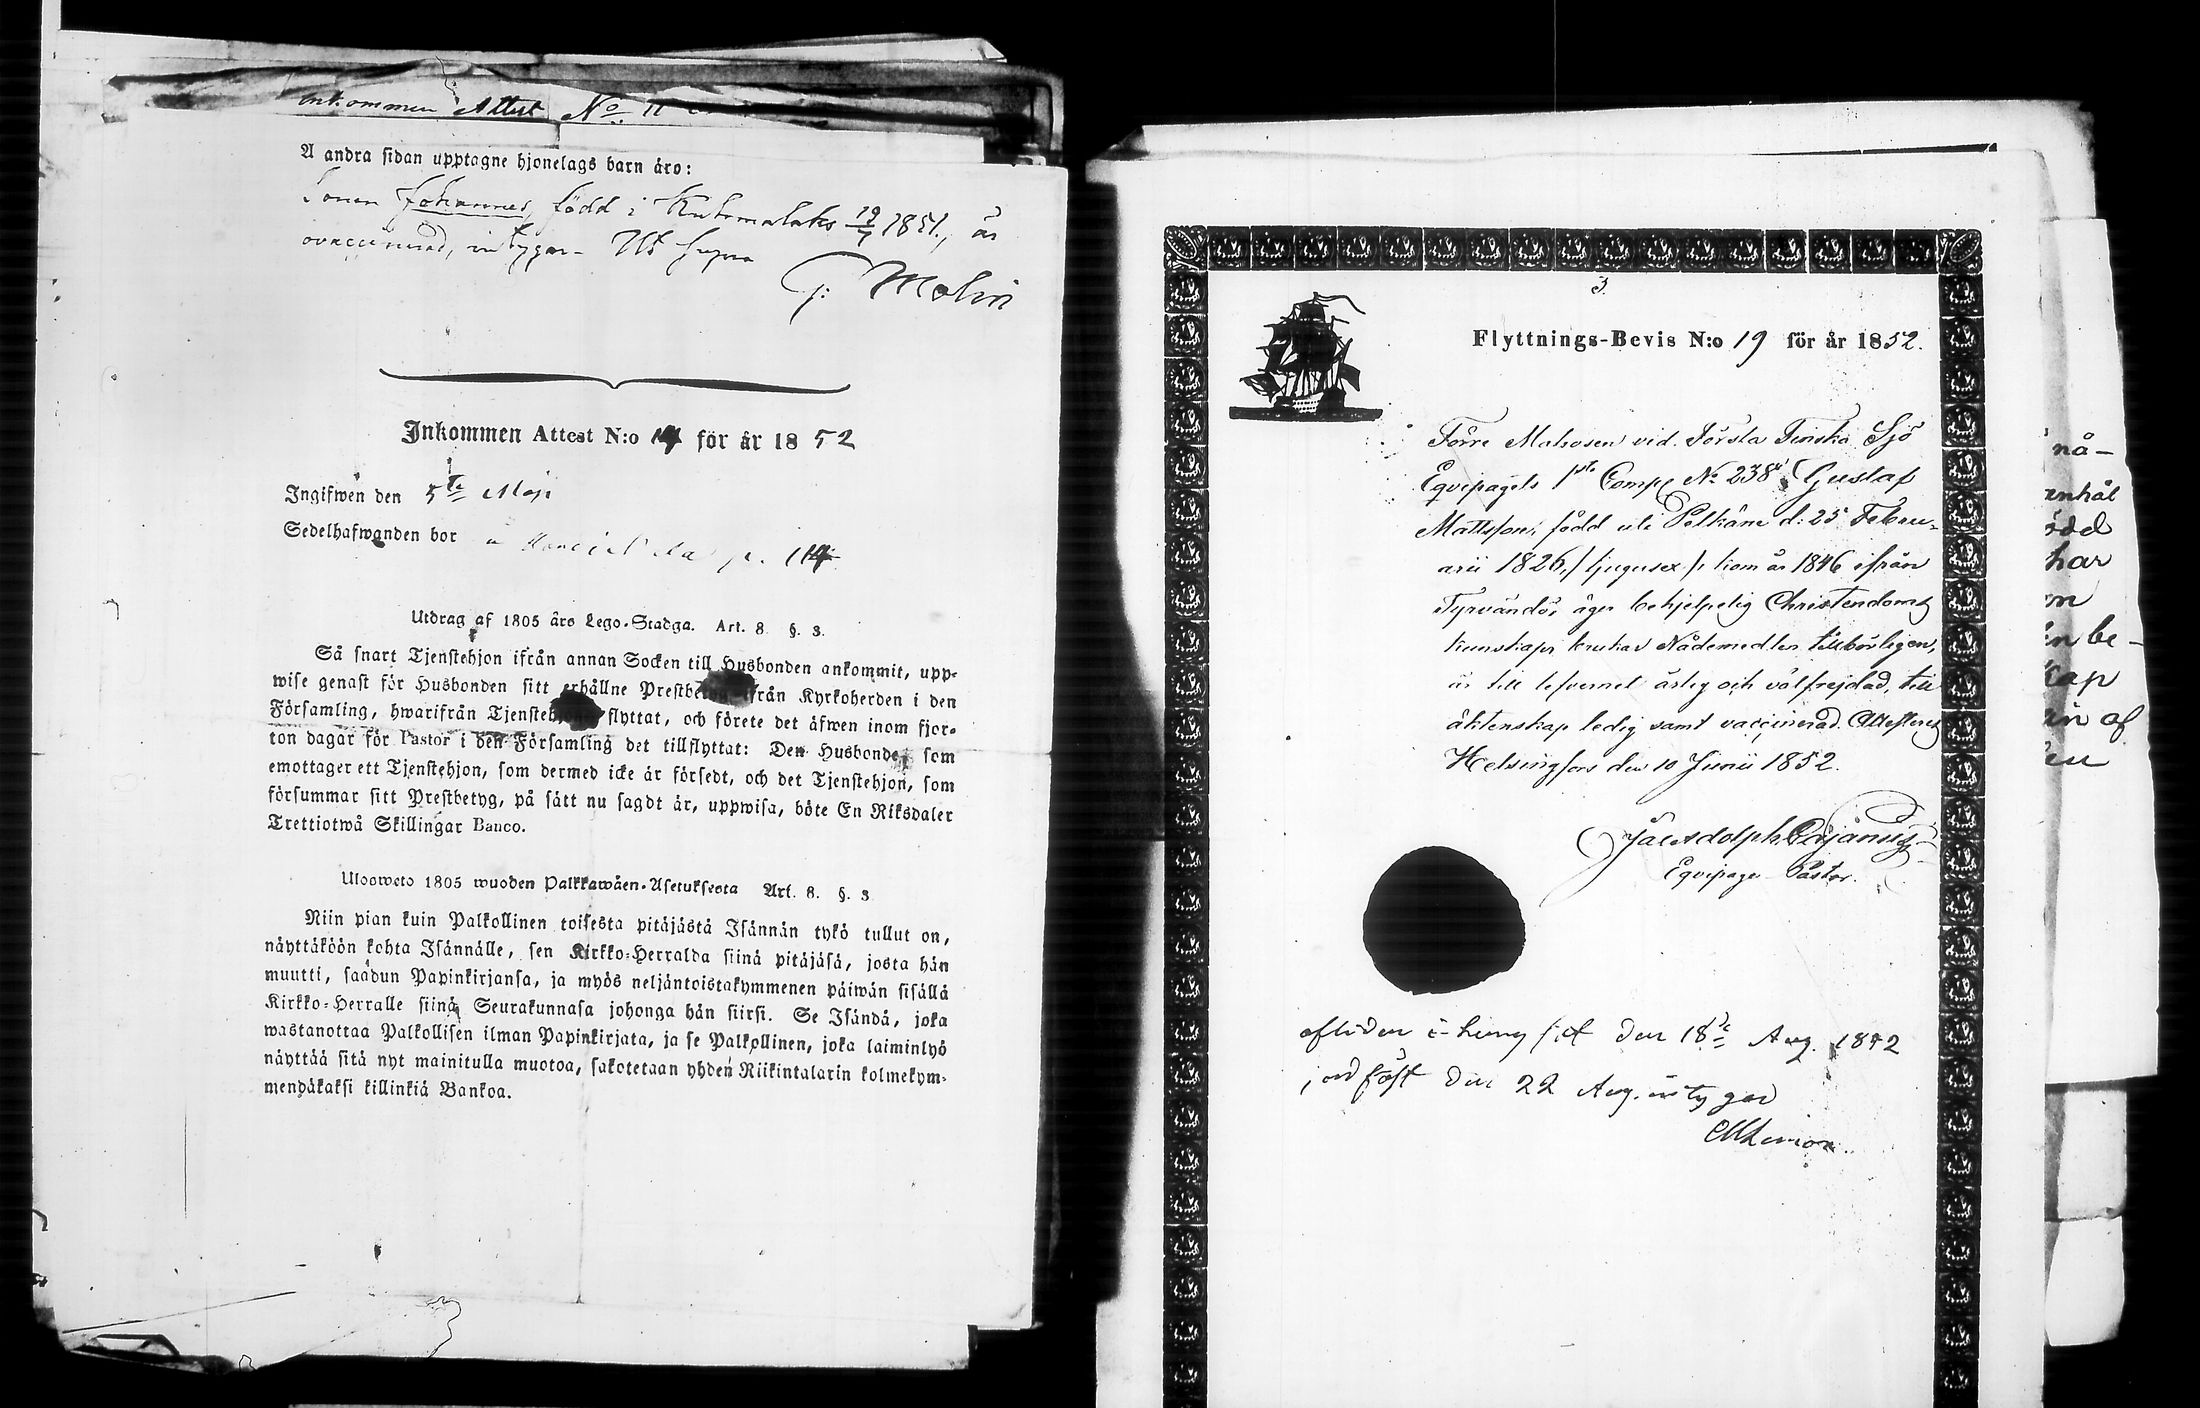 Inkommen Attest No. 11
A andra sidan upptagne hjonelags barn äro:
Sonen Johannes, född i Kuhmalahs 19/7 1851., är
ovaccinerad, intygar Ut supra
G: Molin
Inkommen Attest N:o 14 för år 1852
Ingifwen den 5te Maji
Sedelhafwanden bor p. 114
Utdrag af 1805 års Lego-Stadga. Art. 8. §. 3.
Så snart Tjenstehjon ifrån annan Socken till Husbonden ankommit, upp-
wise genast för Husbonden sitt erhållne Prestbe ifrån Kyrkoherden i den
Församling, hwarifrån Tjensteh flyttat, och förete det äfwen inom fjor-
ton dagar för Pastor i den Församling det tillflyttat: Den Husbonde, som
emottager ett Tjenstehjon, som dermed icke är försedt, och det Tjenstehjon, som
försummar sitt Prestbetyg, på sätt nu sagdt är, uppwisa, böte En Riksdaler
Trettiotwå Skillingar Banco.
Ulosweto 1805 wuoden Palkkawäen-Asetuksesta Art. 8. §. 3
Niin pian kuin Palkollinen toisesta pitäjästä Isännän tykö tullut on,
näyttäköön kohta Isännälle, sen Kirkko-Herralda siinä pitäjäsä, josta hän
muutti, saadun Papinkirjansa, ja myös neljäntoistakymmenen päiwän sisällä
Kirkko-Herralle siinä Seurakunnasa johonga hän siirsi. Se Isändä, joka
wastanottaa Palkollisen ilman Papinkirjata, ja se Palkollinen, joka laiminlyö
näyttää sitä nyt mainitulla muotoa, sakotetaan yhden Riikintalarin kolmekym-
mendäkaksi killinkiä Bankoa.
3.
Flyttnings-Bevis N:o 19 för år 1852.
Förre Matrosen vid Första Finska Sjö
Equipagets 1sta Comp. No 238, Gustaf
Mattsson, född uti Pelkäne d: 25 Febru-
arii 1826, /: tjugusex :/, kom år 1846 ifrån
Tyrvändö, äger behjelpelig Christendoms
kunskap, brukar Nådemedlen tillbörligen,
är till lefvernet ärlig och välfrejdad, till
äktenskap ledig samt vaccinerad. Attesteras
Helsingfors den 10 Junii 1852.
Jac. Adolph
Equipage-Pastor.
afliden i den 18de Aug. 1852
jordfäst den 22 Aug. intygar
nå-
anhål
ödd
har
on
n be-
kap
in af
en